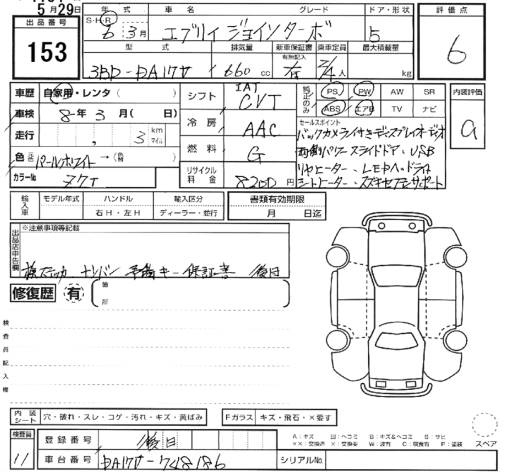 5月29日
出品番号
153
年式
車名
グレード
ドア・形状
評価点
S・H・R
6 3月
エブリイ ジョインターボ
5
6
型式
排気量
新車保証書
有無記入
乗車定員
最大積載量
3BD-DA17V
660 cc
有
2/4人
kg
車歴
自家用・レンタ
シフト
IAT
CVT
純正のみ
PS
PW
AW
SR
ABS
エアB
TV
ナビ
内装評価
a
車検
8年3月
冷房
AAC
セールスポイント
バックカメラ
両側パワースライドドア・USB
リヤヒーター・LEDヘッドライト
シートヒーター・スズキセーフティサポート
走行
3
km
マイル
燃料
G
色
パールホワイト
カラーNo
ヌケT
リサイクル料金
8200円
輸入車
モデル年式
ハンドル
右H・左H
輸入区分
ディーラー・並行
書類有効期限
月 日迄
出品店申告欄
※注意事項等記載
旗ステッカー ナンバー 予備キー 保証書 後日
修復歴
有
箇所
検査員記入欄
内装シート
穴・破れ・スレ・コゲ・汚れ・キズ・黄ばみ
Fガラス
キズ・飛石・×要す
スペア
検査員
11
登録番号
後日
車台番号
DA17V-748186
シリアルNo.